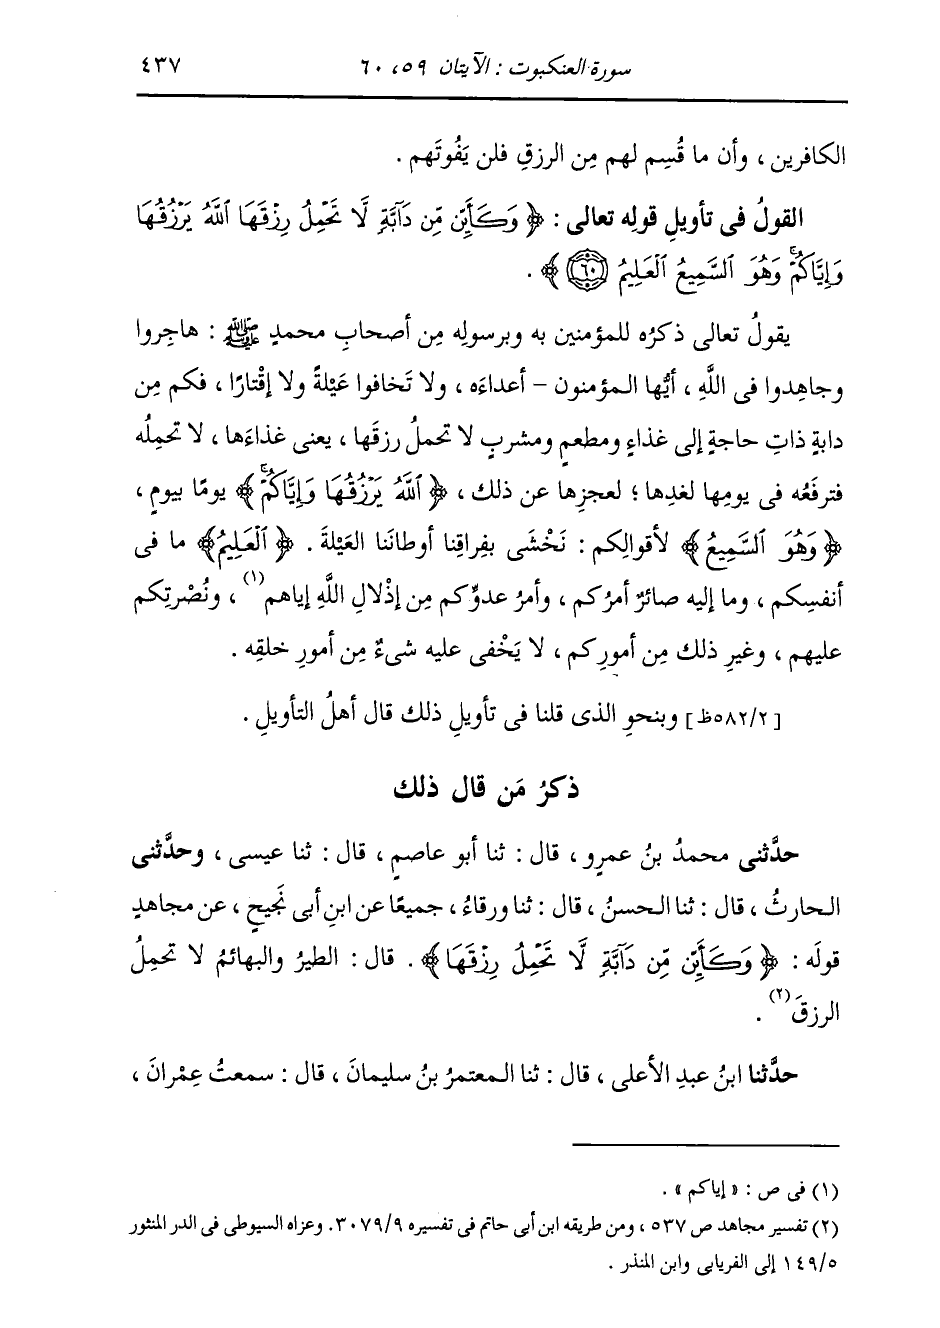 سورة العنكبوت : الآيتان ٥٩، ٦٠ ٤٣٧
الكافرين ، وأن ما قُسِم لهم مِن الرزقِ فلن يَفُوتَهم .
القولُ فى تأويلِ قولِه تعالى : ﴿ وَكَأَيِّن مِّن دَآبَّةٍ لَّا تَحْمِلُ رِزْقَهَا ٱللَّهُ يَرْزُقُهَا
وَإِيَّاكُمْۚ وَهُوَ ٱلسَّمِيعُ ٱلْعَلِيمُ ٦٠ ﴾ .
يقولُ تعالى ذكرُه للمؤمنين به وبرسولِه مِن أصحابِ محمدٍ ﷺ : هاجِروا
وجاهِدوا فى اللَّهِ ، أيُّها المؤمنون - أعداءَه ، ولا تَخافوا عَيْلةً ولا إقْتارًا ، فكم مِن
دابةٍ ذاتِ حاجةٍ إلى غذاءٍ ومطعمٍ ومشربٍ لا تحملُ رزقَها ، يعنى غذاءَها ، لا تحمِلُه
فترفَعُه فى يومِها لغدِها ؛ لعجزِها عن ذلك ، ﴿ ٱللَّهُ يَرْزُقُهَا وَإِيَّاكُمْۚ ﴾ يومًا بيومٍ ،
﴿ وَهُوَ ٱلسَّمِيعُ ﴾ لأقوالِكم : نَخْشَى بفِراقِنا أوطانَنا العَيْلةَ . ﴿ ٱلْعَلِيمُ ﴾ ما فى
أنفسِكم ، وما إليه صائرٌ أمرُكم ، وأمرُ عدوِّكم مِن إذْلالِ اللَّهِ إياهم(١) ، ونُصْرتِكم
عليهم ، وغيرِ ذلك مِن أمورِكم ، لا يَخْفى عليه شىءٌ مِن أمورِ خلقِه .
[٥٨٢/٢ظ] وبنحوِ الذى قلنا فى تأويلِ ذلك قال أهلُ التأويلِ .
ذكرُ مَن قال ذلك
حدَّثنى محمدُ بنُ عمرٍو ، قال : ثنا أبو عاصمٍ ، قال : ثنا عيسى ، وحدَّثنى
الحارثُ ، قال : ثنا الحسنُ ، قال : ثنا ورقاءُ ، جميعًا عن ابنِ أبى نَجيحٍ ، عن مجاهدٍ
قولَه : ﴿ وَكَأَيِّن مِّن دَآبَّةٍ لَّا تَحْمِلُ رِزْقَهَا ﴾ . قال : الطيرُ والبهائمُ لا تحمِلُ
الرزقَ(٢) .
حدَّثنا ابنُ عبدِ الأعلى ، قال : ثنا المعتمرُ بنُ سليمانَ ، قال : سمعتُ عِمْرانَ ،
(١) فى ص : « إياكم » .
(٢) تفسير مجاهد ص ٥٣٧ ، ومن طريقه ابن أبى حاتم فى تفسيره ٣٠٧٩/٩ . وعزاه السيوطى فى الدر المنثور
١٤٩/٥ إلى الفريابى وابن المنذر .